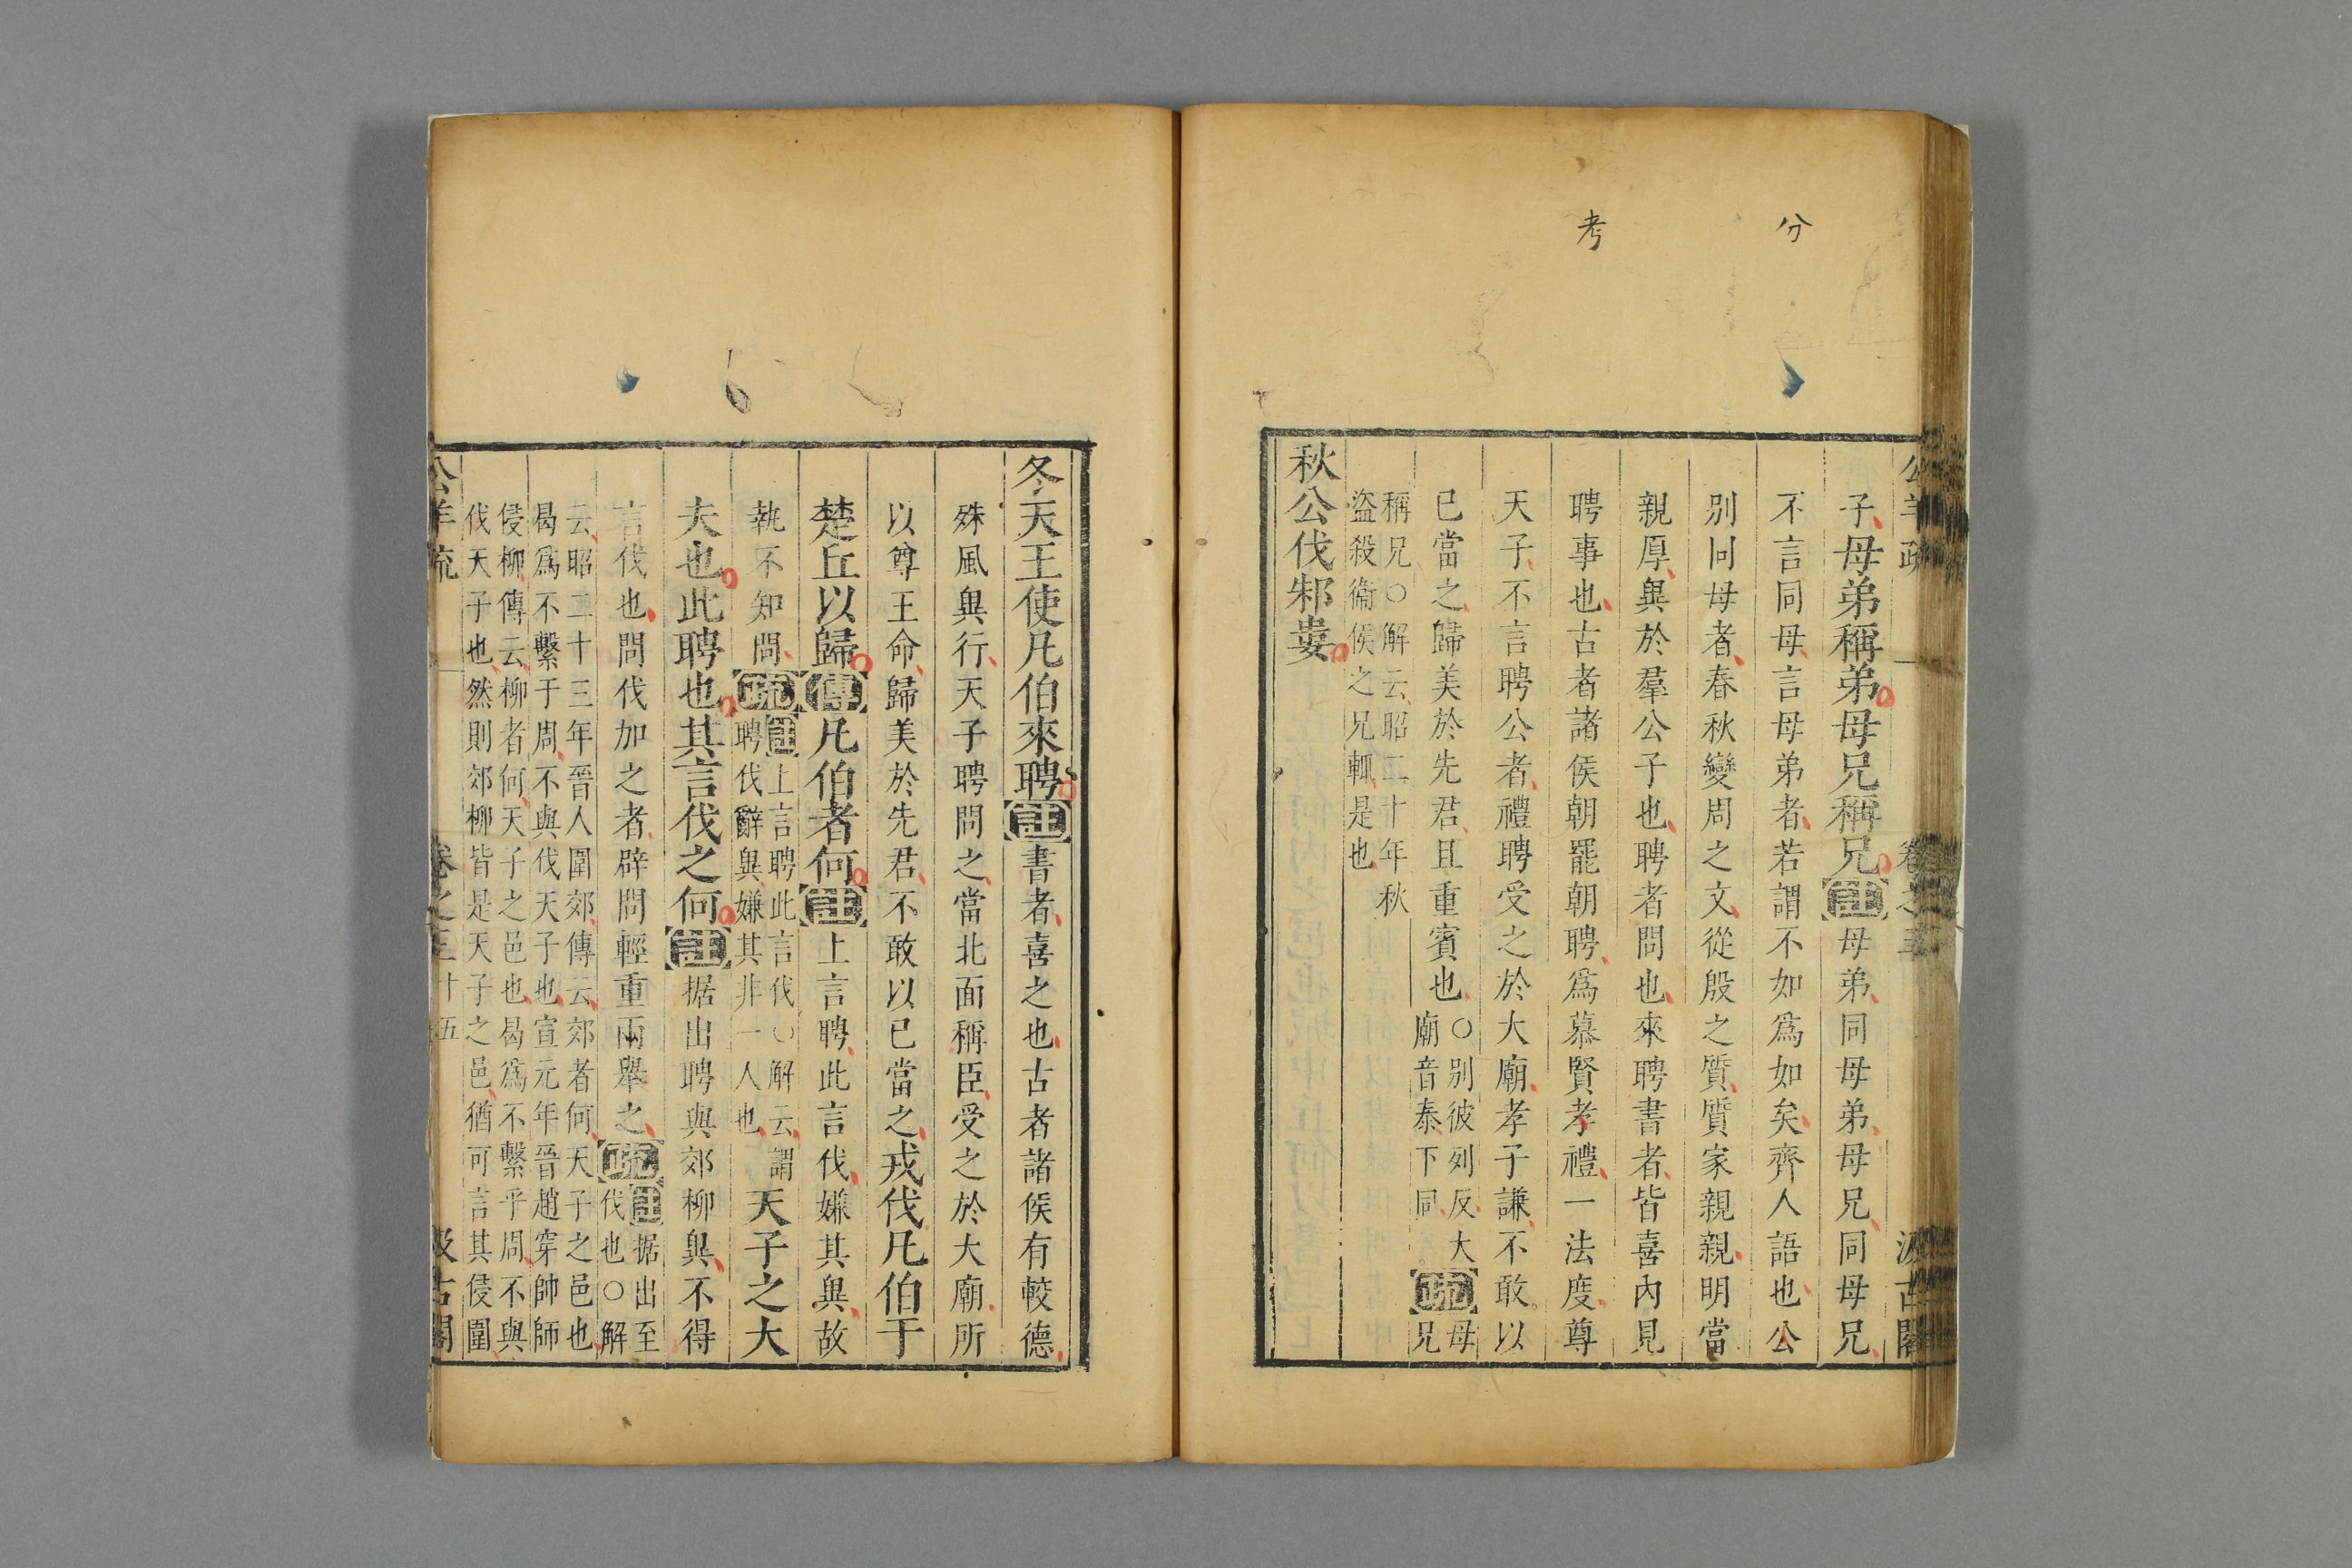 分
考
公羊疏 卷之三 汲古閣
子母弟稱弟母兄稱兄註母弟同母弟母兄同母兄
不言同母言母弟者若謂不如爲如矣齊人語也公
别同母者春秋變周之文從殷之質質家親親明當
親厚異於羣公子也聘者問也來聘書者皆喜內見
聘事也古者諸侯朝罷朝聘爲慕賢孝禮一法度尊
天子不言聘公者禮聘受之於大廟孝子謙不敢以
已當之歸美於先君且重賓也○别彼列反大廟音泰下同疏母兄
稱兄○解云昭二十年秋
盜殺衞侯之兄輒是也
秋公伐邾婁
冬天王使凡伯來聘註書者喜之也古者諸侯有較德
殊風異行天子聘問之當北面稱臣受之於大廟所
以尊王命歸美於先君不敢以已當之戎伐凡伯于
楚丘以歸傳凡伯者何註上言聘此言伐嫌其異故
執不知問疏註上言聘此言伐○解云謂聘伐辭異嫌其非一人也天子之大
夫也此聘也其言伐之何註据出聘與郊柳異不得
言伐也問伐加之者辟問輕重兩舉之疏註据出至伐也○解
云昭二十三年晉人圍郊傳云郊者何天子之邑也
曷爲不繫于周不與伐天子也宣元年晉趙穿帥師
侵柳傳云柳者何天子之邑也曷爲不繫乎周不與
伐天子也然則郊柳皆是天子之邑猶可言其侵圍
公羊疏 卷之三 十五 汲古閣